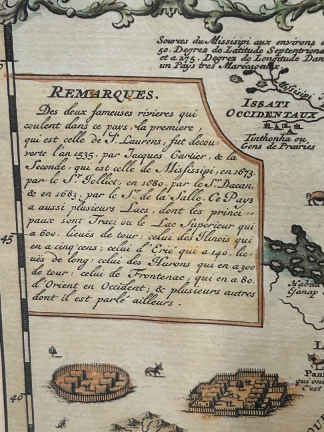 Sources du Missisipi aux environs
50. Degrez de Latitude Septentriona
et a 275. Degrez de Longitude Dan
un Pays tres Marécageux
ISSATI
OCCIDENTAUX
Tinthonha ou
Gens de Prairies
REMARQUES.
Des deux fameuses rivieres qui
coulent dans ce pays, la premiere,
qui est celle de S. Laurens, fut decou-
verte l'an 1535. par Jacques Cartier, & la
Seconde, qui est celle de Missisipi, en 1673.
par le Sr. Jolliet, en 1680. par le Sr. Dacan,
& en 1683. par le Sr. de la Salle. Ce Pays
a aussi plusieurs Lacs, dont les princi-
paux sont Tracy ou le Lac Superieur qui
a 600. lieuës de tour, celui des Ilinois qui
en a cinq cens; celui d'Erié qui a 140. lie-
uës de long; celui des Hurons qui en a 300
de tour; celui de Frontenac, qui en a 80.
d'Orient en Occident; & plusieurs autres
dont il est parlé ailleurs.
45
40